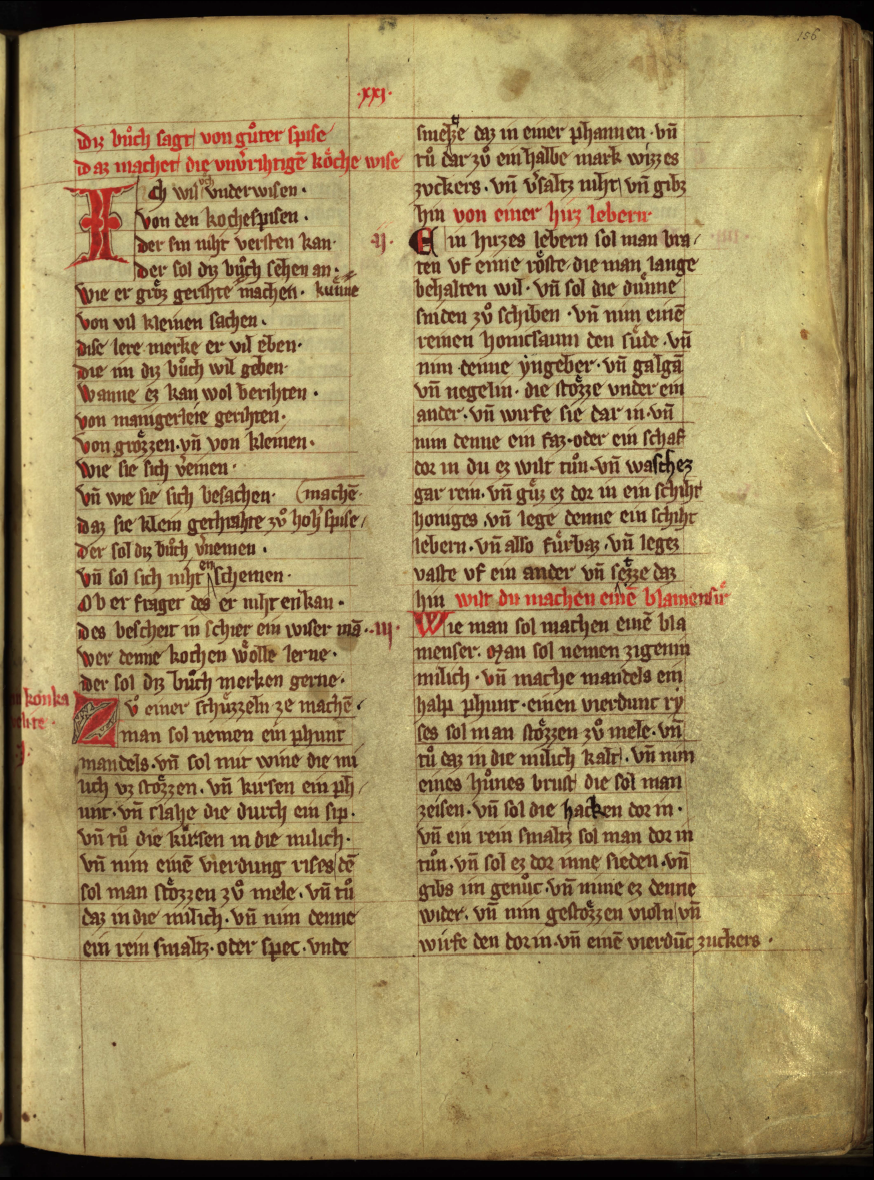 156
·xxj·
Diz bůch sagt von gůter spise
Daz machet die vnv̓rihtigē kőche wise
Ich wil v̈ch vnderwisen·
von den kochespisen·
der sin niht versten kan·
der sol diz bůch sehen an·
wie er groz gerihte machen· kunne
von vil kleinen sachen·
dise lere merke er vil eben·
die im diz bůch wil geben·
wanne ez kan wol berihten·
von manigerleie gerihten·
von grozzen· vn̄ von kleinen·
wie sie sich v̓einen·
vn̄ wie sie sich besachen· (machē·
daz sie klein gerihte zů hoh̓ spise/
der sol diz bůch v̓nemen·
vn̄ sol sich niht enschemen·
Ob er fraget des er niht enkan·
des bescheit in schier ein wiser mā·
wer denne kochen wőlle lerne·
der sol diz bůch merken gerne·
konka
Zv̊ einer schůzzeln ze machē·
man sol nemen ein phunt
mandels· vn̄ sol mit wine die mi
lich vz stozzen· vn̄ kirsen ein ph/
unt· vn̄ slahe die durch ein sip·
vn̄ tů die kirsen in die milich·
vn̄ nim einē vierdung rises dē
sol man stozzen zů mele· vn̄ tů
daz in die milich· vn̄ nim denne
ein rein smaltz· oder spec· vnde
smeltze daz in einer phannen· vn̄
tů dar zů ein halbe mark wizzes
zuckers· vn̄ v̓saltz niht vn̄ gibz
hin von einer hirz lebern·
·ij·
Ein hirzes lebern sol man bra/
ten vf eime rőste· die man lange
behalten wil· vn̄ sol die dünne
sniden zů schiben· vn̄ nim einē
reinen honicsaum den sůde· vn̄
nim denne yngeber· vn̄ galgā
vn̄ negelin· die stozze vnder ein
ander· vn̄ wirfe sie dar in· vn̄
nim denne ein faz· oder ein schaf
dor in du ez wilt tůn· vn̄ waschez
gar rein· vn̄ gůz ez dor in ein schiht
honiges· vn̄ lege denne ein schiht
lebern· vn̄ also fůrbaz· vn̄ legez
vaste vf ein ander vn̄ setze daz
hin wilt du machen einē blamensir̓
·iij·
Wie man sol machen einē bla
menser· Man sol nemen zigenin
milich· vn̄ mache mandels ein
halp phunt· einen vierdunc ry
ses sol man stozzen zů mele· vn̄
tů daz in die milich kalt· vn̄ nim
eines hůnes brust die sol man
zeisen· vn̄ sol die hacken dor in·
vn̄ ein rein smaltz sol man dor in
tůn· vn̄ sol ez dor inne sieden· vn̄
gibs im genůc· vn̄ nime ez denne
wider· vn̄ nim gestozzen violn vn̄
wirfe den dor in· vn̄ einē vierdūc zuckers·